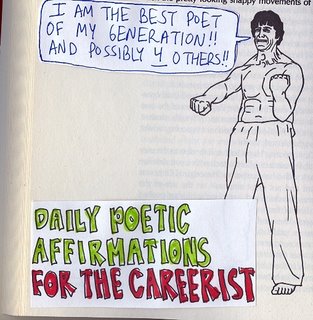 the pretty looking snappy movements of
I AM THE BEST POET
OF MY GENERATION!!
AND POSSIBLY 4 OTHERS!!
DAILY POETIC
AFFIRMATIONS
FOR THE CAREERIST